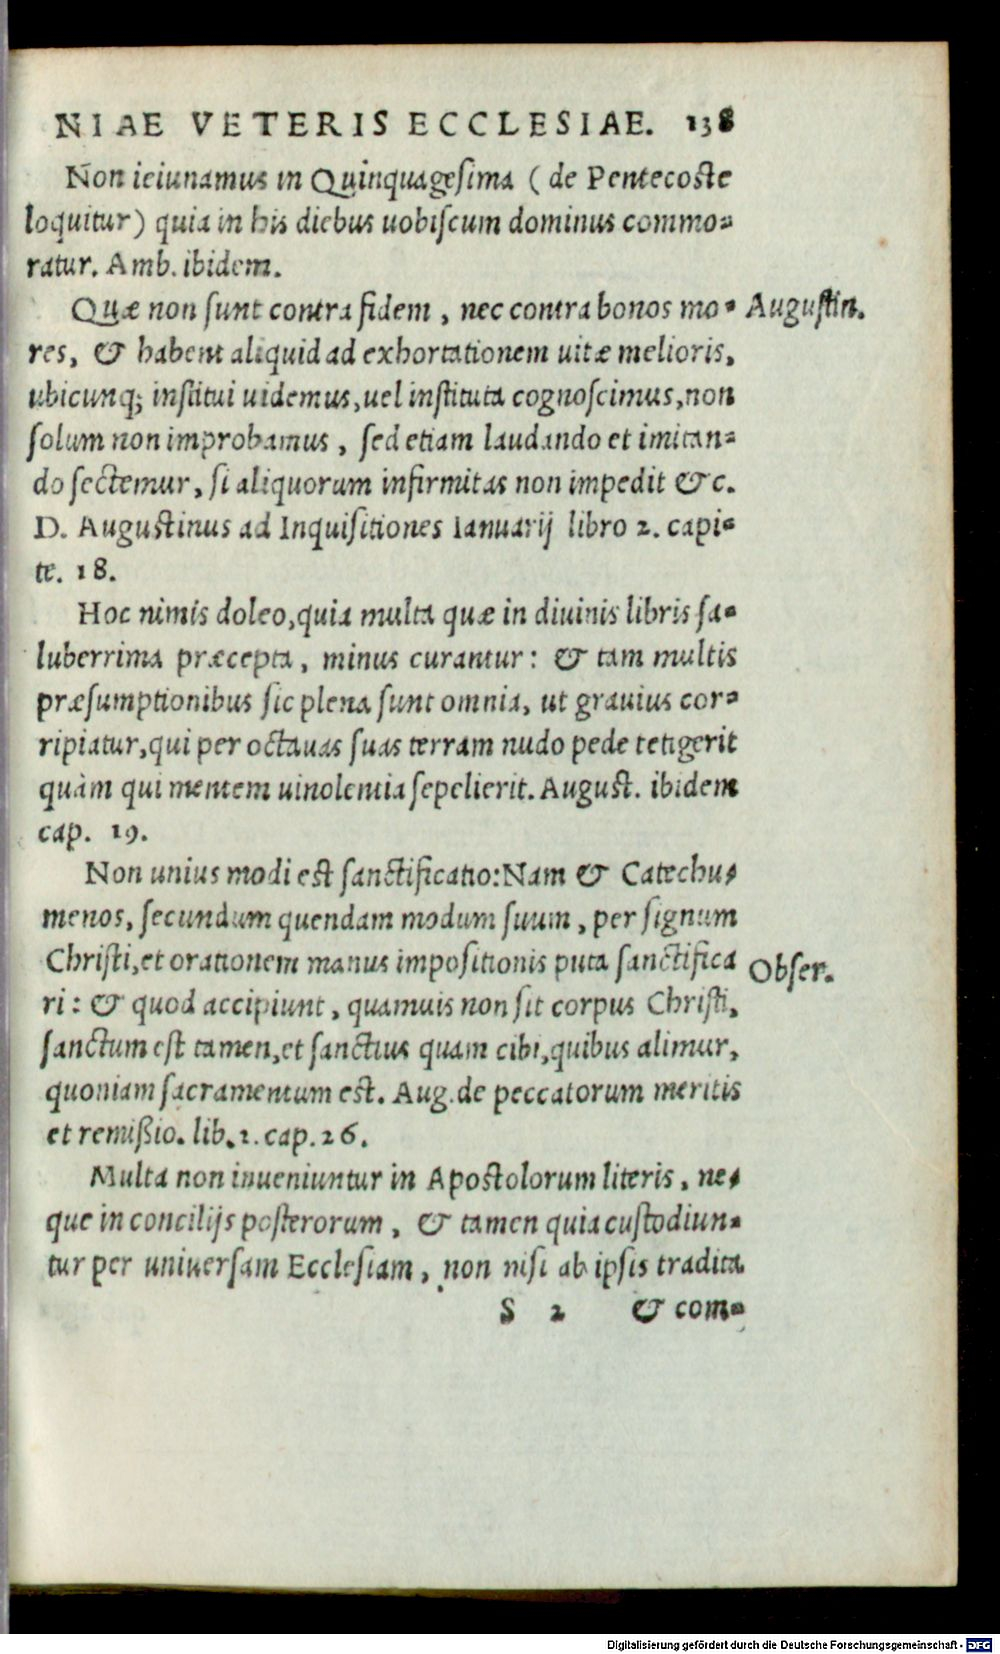 NIAE VETERIS ECCLESIAE. 138
Non ieiunamus in Quinquagesima (de Pentecoste
loquitur) quia in his diebus uobiscum dominus commo-
ratur. Amb. ibidem.
Quæ non sunt contra fidem, nec contra bonos mo- Augustin.
res, & habent aliquid ad exhortationem uitæ melioris,
ubicunq; institui uidemus, uel instituta cognoscimus, non
solum non improbamus, sed etiam laudando et imitan-
do sectemur, si aliquorum infirmitas non impedit &c.
D. Augustinus ad Inquisitiones Ianuarij libro 2. capi-
te. 18.
Hoc nimis doleo, quia multa quæ in diuinis libris sa-
luberrima præcepta, minus curantur: & tam multis
præsumptionibus sic plena sunt omnia, ut grauius cor-
ripiatur, qui per octauas suas terram nudo pede tetigerit
quàm qui mentem uinolentia sepelierit. August. ibidem
cap. 19.
Non unius modi est sanctificatio: Nam & Catechu-
menos, secundum quendam modum suum, per signum
Christi, et orationem manus impositionis puta sanctifica
ri: & quod accipiunt, quamuis non sit corpus Christi, Obser.
sanctum est tamen, et sanctius quam cibi, quibus alimur,
quoniam sacramentum est. Aug. de peccatorum meritis
et remißio. lib. 2. cap. 26.
Multa non inueniuntur in Apostolorum literis, ne-
que in concilijs posterorum, & tamen quia custodiun-
tur per uniuersam Ecclesiam, non nisi ab ipsis tradita
S 2 & com-
Digitalisierung gefördert durch die Deutsche Forschungsgemeinschaft - DFG